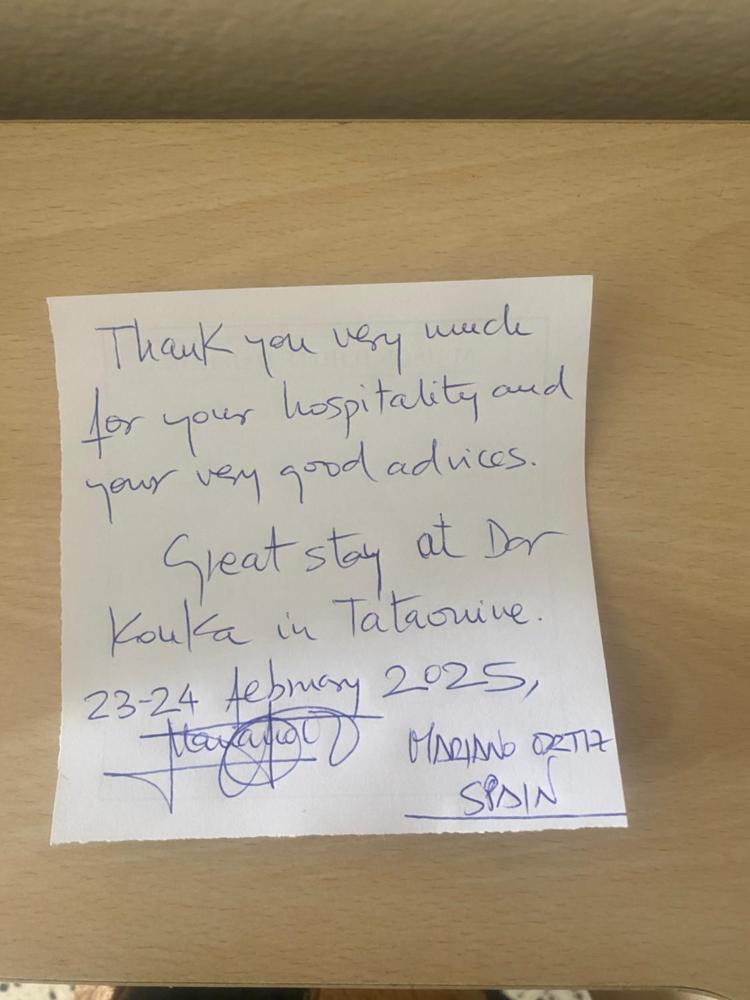 Thank you very much
for your hospitality and
your very good advices.
Great stay at Dar
Kouka in Tataouine.
23-24 february 2025,
MARIANO ORTIZ
SPAIN